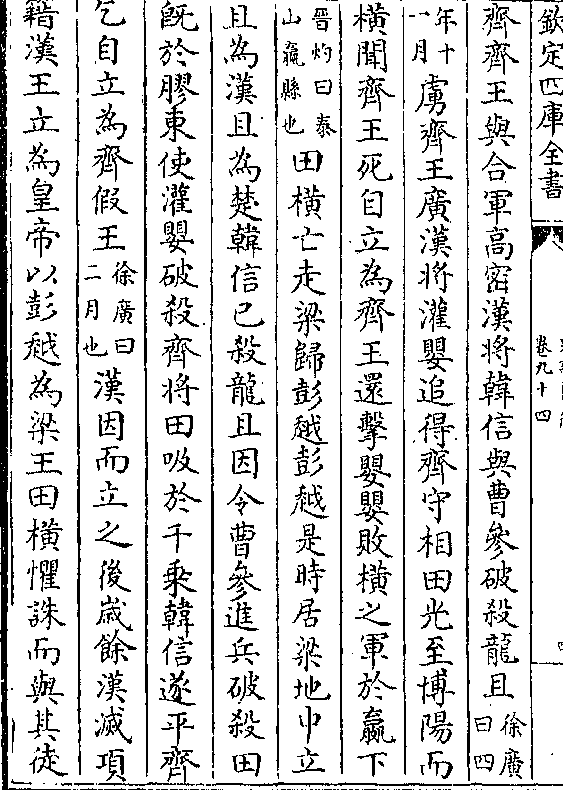 欽定四庫全書
卷九十四
齊齊王與合軍高密漢將韓信與曹參破殺龍且徐廣曰四
年十一月虜齊王廣漢將灌嬰追得齊守相田光至博陽而
橫聞齊王死自立為齊王還擊嬰嬰敗橫之軍於嬴下
晉灼曰泰山嬴縣也田橫亡走梁歸彭越彭越是時居梁地中立
且為漢且為楚韓信已殺龍且因令曹參進兵破殺田
既於膠東使灌嬰破殺齊將田吸於千乘韓信遂平齊
乞自立為齊假王徐廣曰二月也漢因而立之後歲餘漢滅項
籍漢王立為皇帝以彭越為梁王田橫懼誅而與其徒